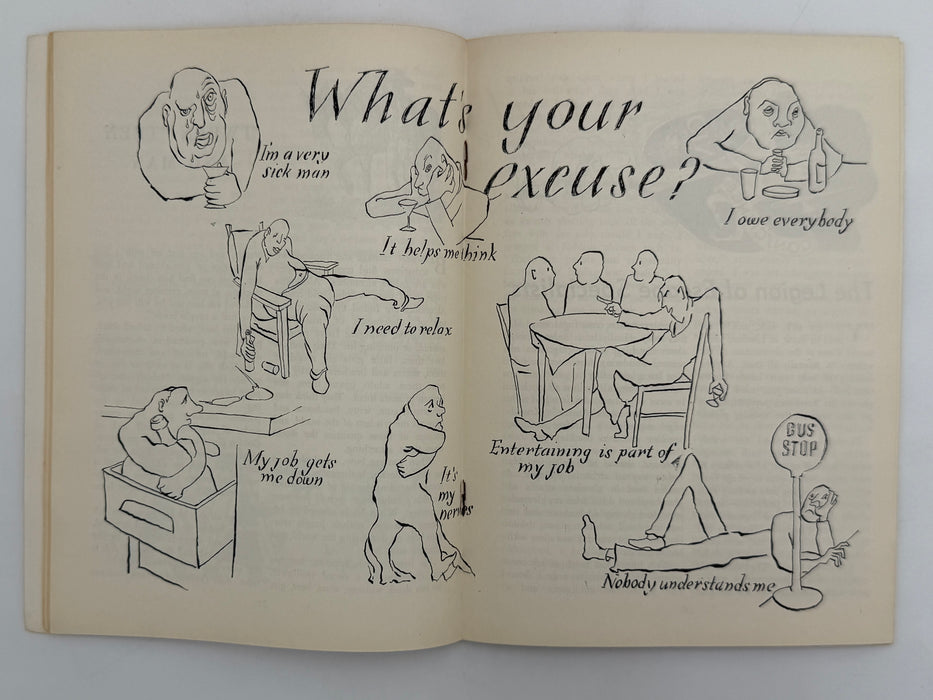 What's your
excuse?
I'm a very
sick man
It helps me think
I owe everybody
I need to relax
My job gets
me down
It's
my
nerves
Entertaining is part of
my job
BUS
STOP
Nobody understands me